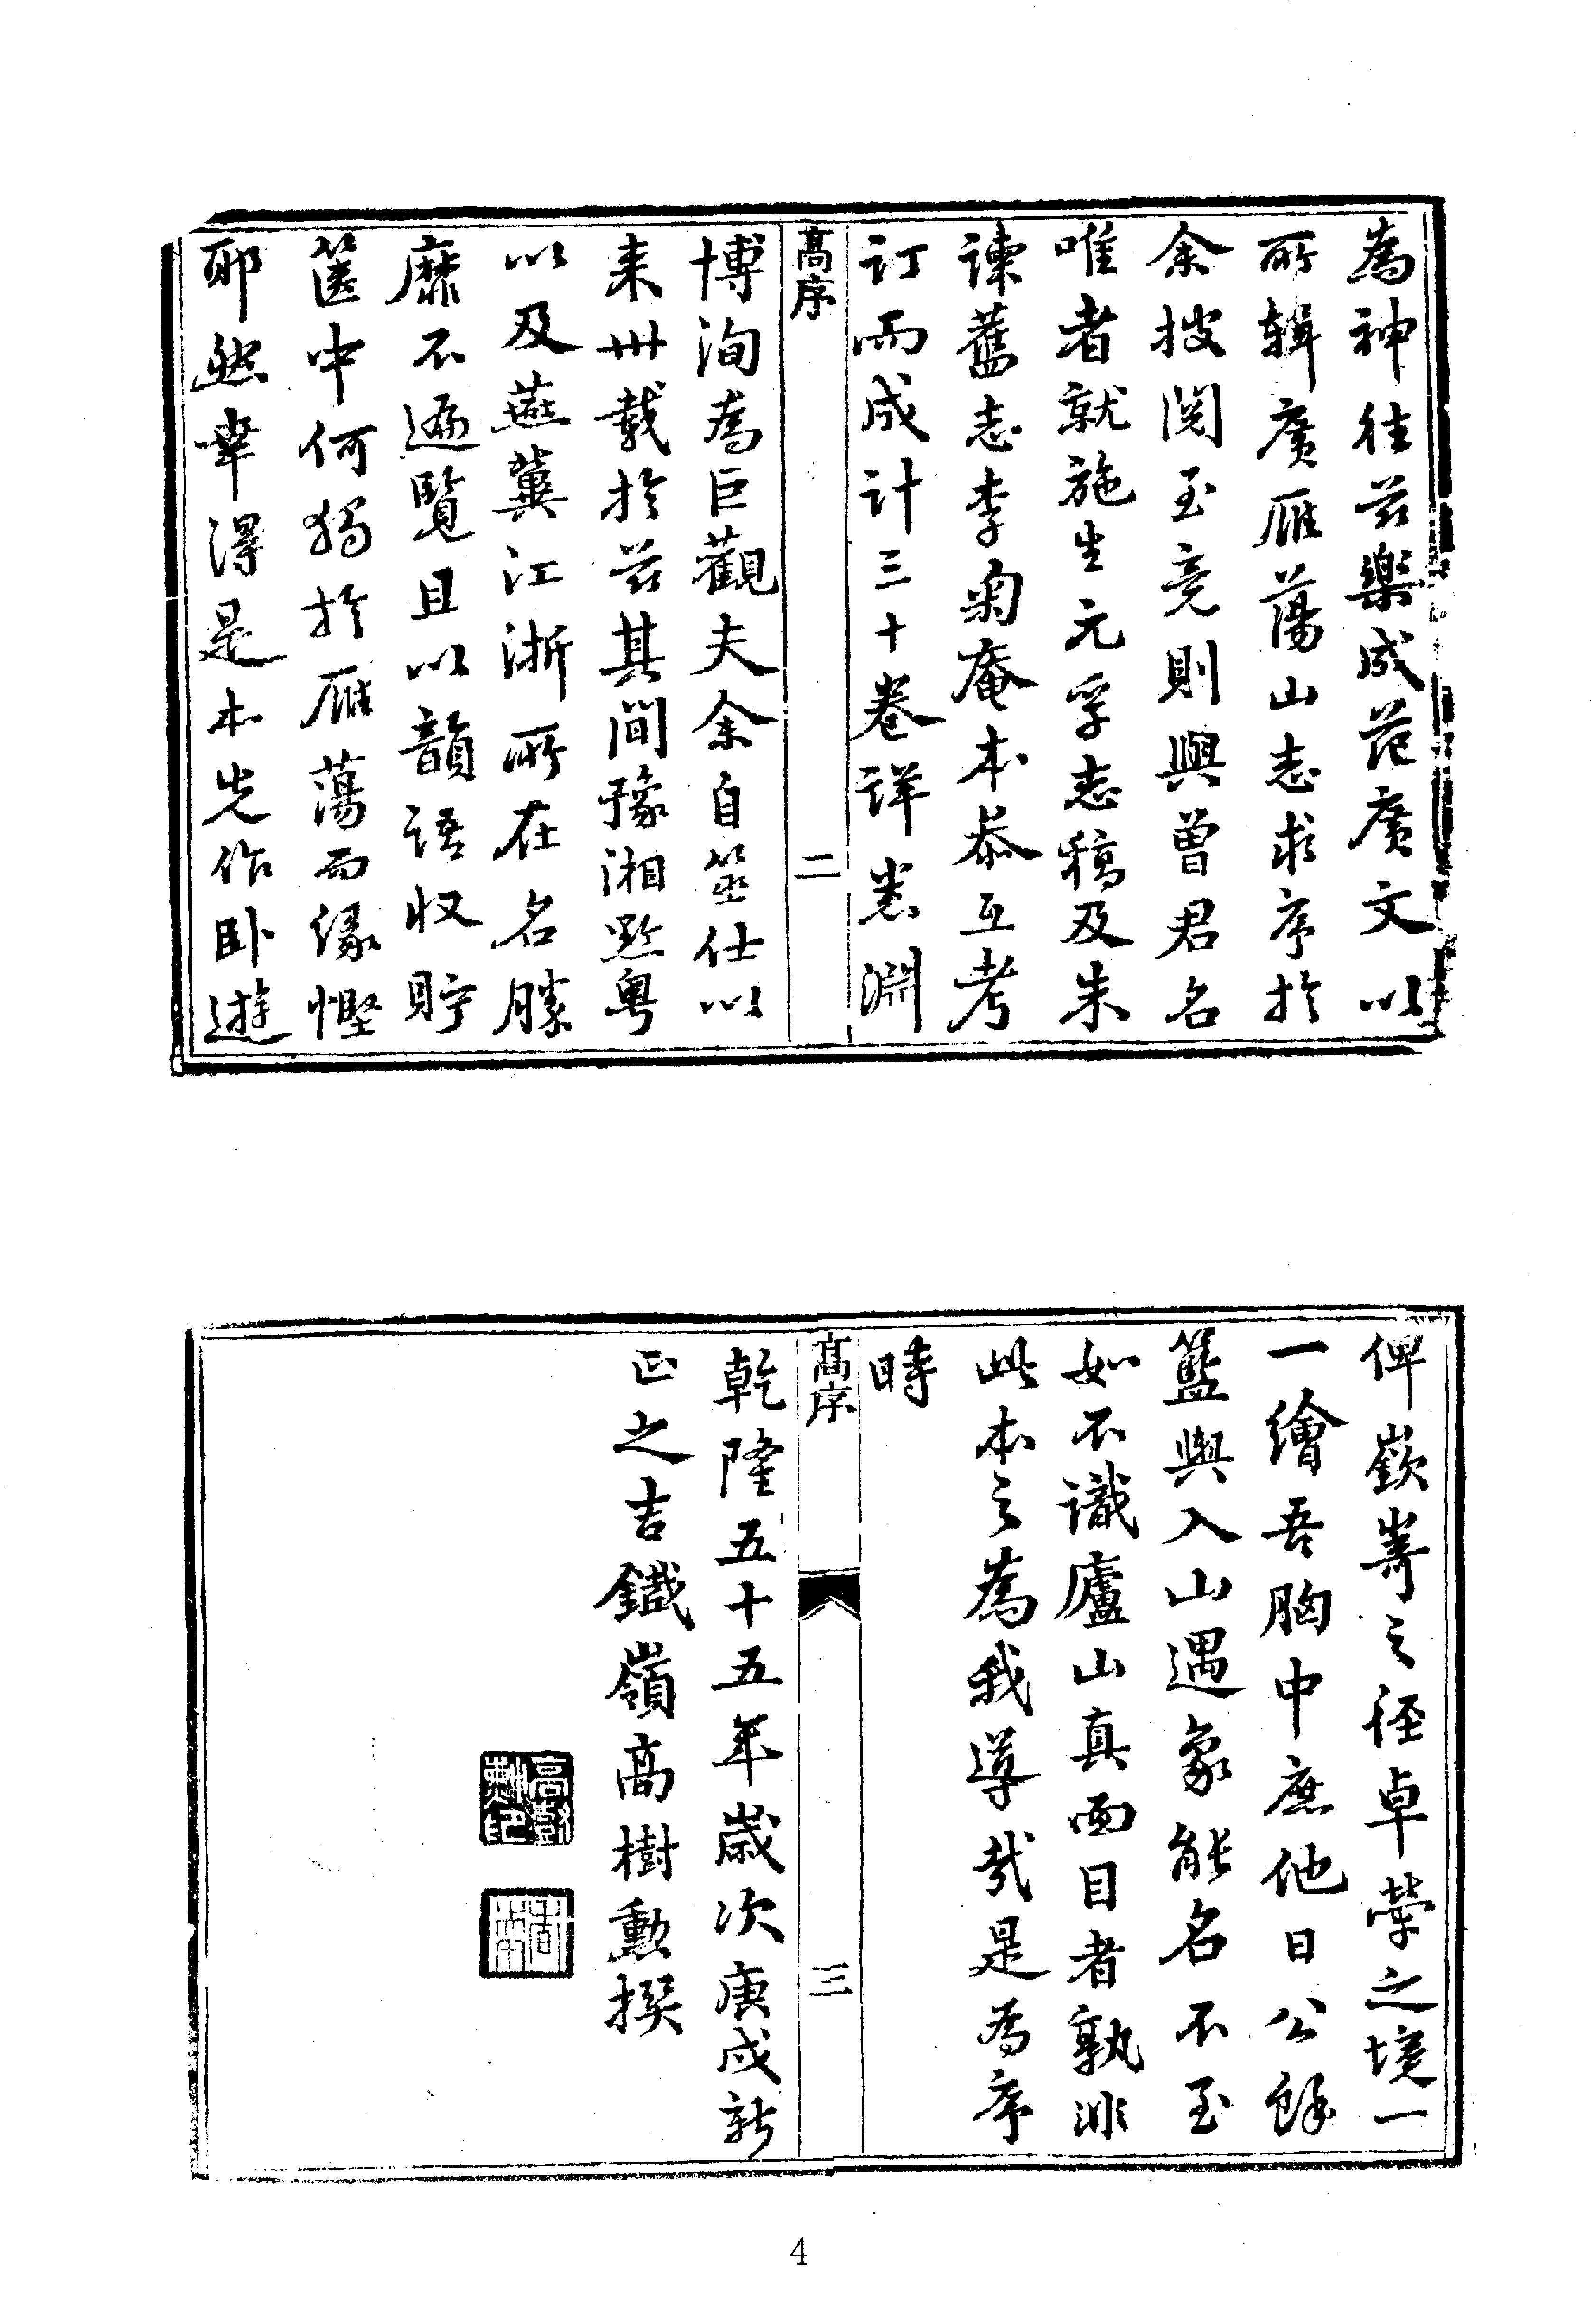 為神往茲樂成范廣文以
所輯廣雁蕩山志求序於
余披閱至竟則興曾君名
唯者就施生元孚志稿及朱
諫舊志李菊庵本叅互考
訂而成計三十卷詳悉淵
高序
二
博洵為巨觀夫余自筮仕以
来卅載於茲其間豫湘黔粵
以及燕冀江浙所在名勝
靡不遍覽且以韻語收貯
篋中何獨於雁蕩而緣慳
耶然幸得是本先作臥遊
俾嶔崎之徑卓犖之境一
一繪吾胸中庶他日公餘
籃輿入山遇象能名不至
如不識廬山真面目者孰非
此本之為我導哉是為序
時
高序
三
乾隆五十五年歲次庚戌新
正之吉鐵嶺高樹勳撰
4